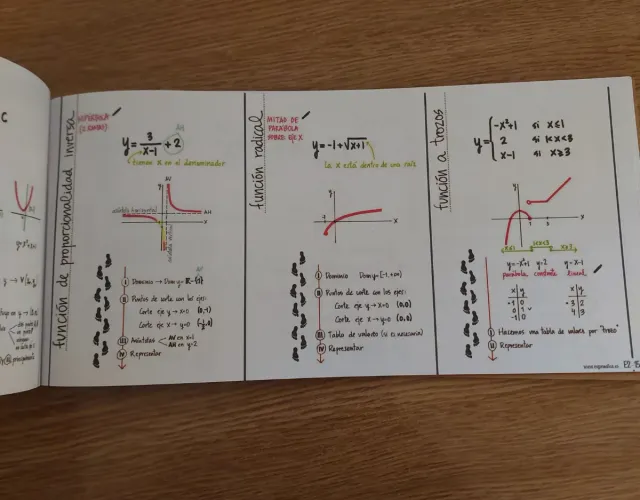 C
función de proporcionalidad inversa
HIPÉRBOLA
(2 RAMAS)
AH
y = 3/(x-1) + 2
tienen x en el denominador
AV
y
asíntota horizontal
AH
x
asíntota vertical
I Dominio → Dom y = ℝ - {1}
II Puntos de corte con los ejes:
Corte eje y → x=0 (0,-1)
Corte eje x → y=0 (-1/2,0)
III Asíntotas AV en x=1
AH en y=2
IV Representar
función radical
MITAD DE
PARÁBOLA
SOBRE EJE X
y = -1+√(x+1)
la x está dentro de una raíz
y
-1
x
I Dominio Dom y = [-1,+∞)
II Puntos de corte con los ejes:
Corte eje y → x=0 (0,0)
Corte eje x → y=0 (0,0)
III Tabla de valores (si es necesaria)
IV Representar
función a trozos
y = { -x²+1 si x≤1
2 si 1<x<3
x-1 si x≥3
y
1
3
x
x≤1 1<x<3 x≥3
y=-x²+1 y=2 y=x-1
parábola constante lineal
x y
-1 0
0 1
1 0
x y
3 2
4 3
I Hacemos una tabla de valores por "trozo"
II Representar